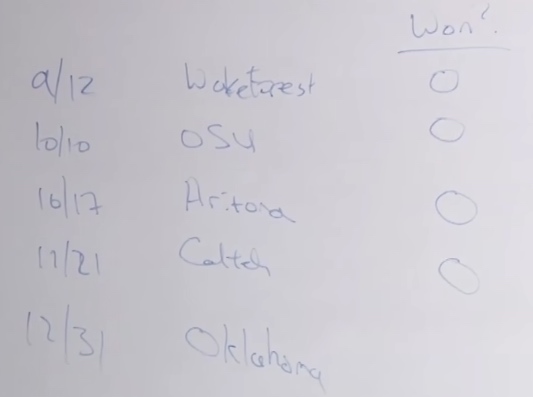 Won?
9/12 Wakeforest O
10/10 OSU O
10/17 Arizona O
11/21 Caltech O
12/31 Oklahoma